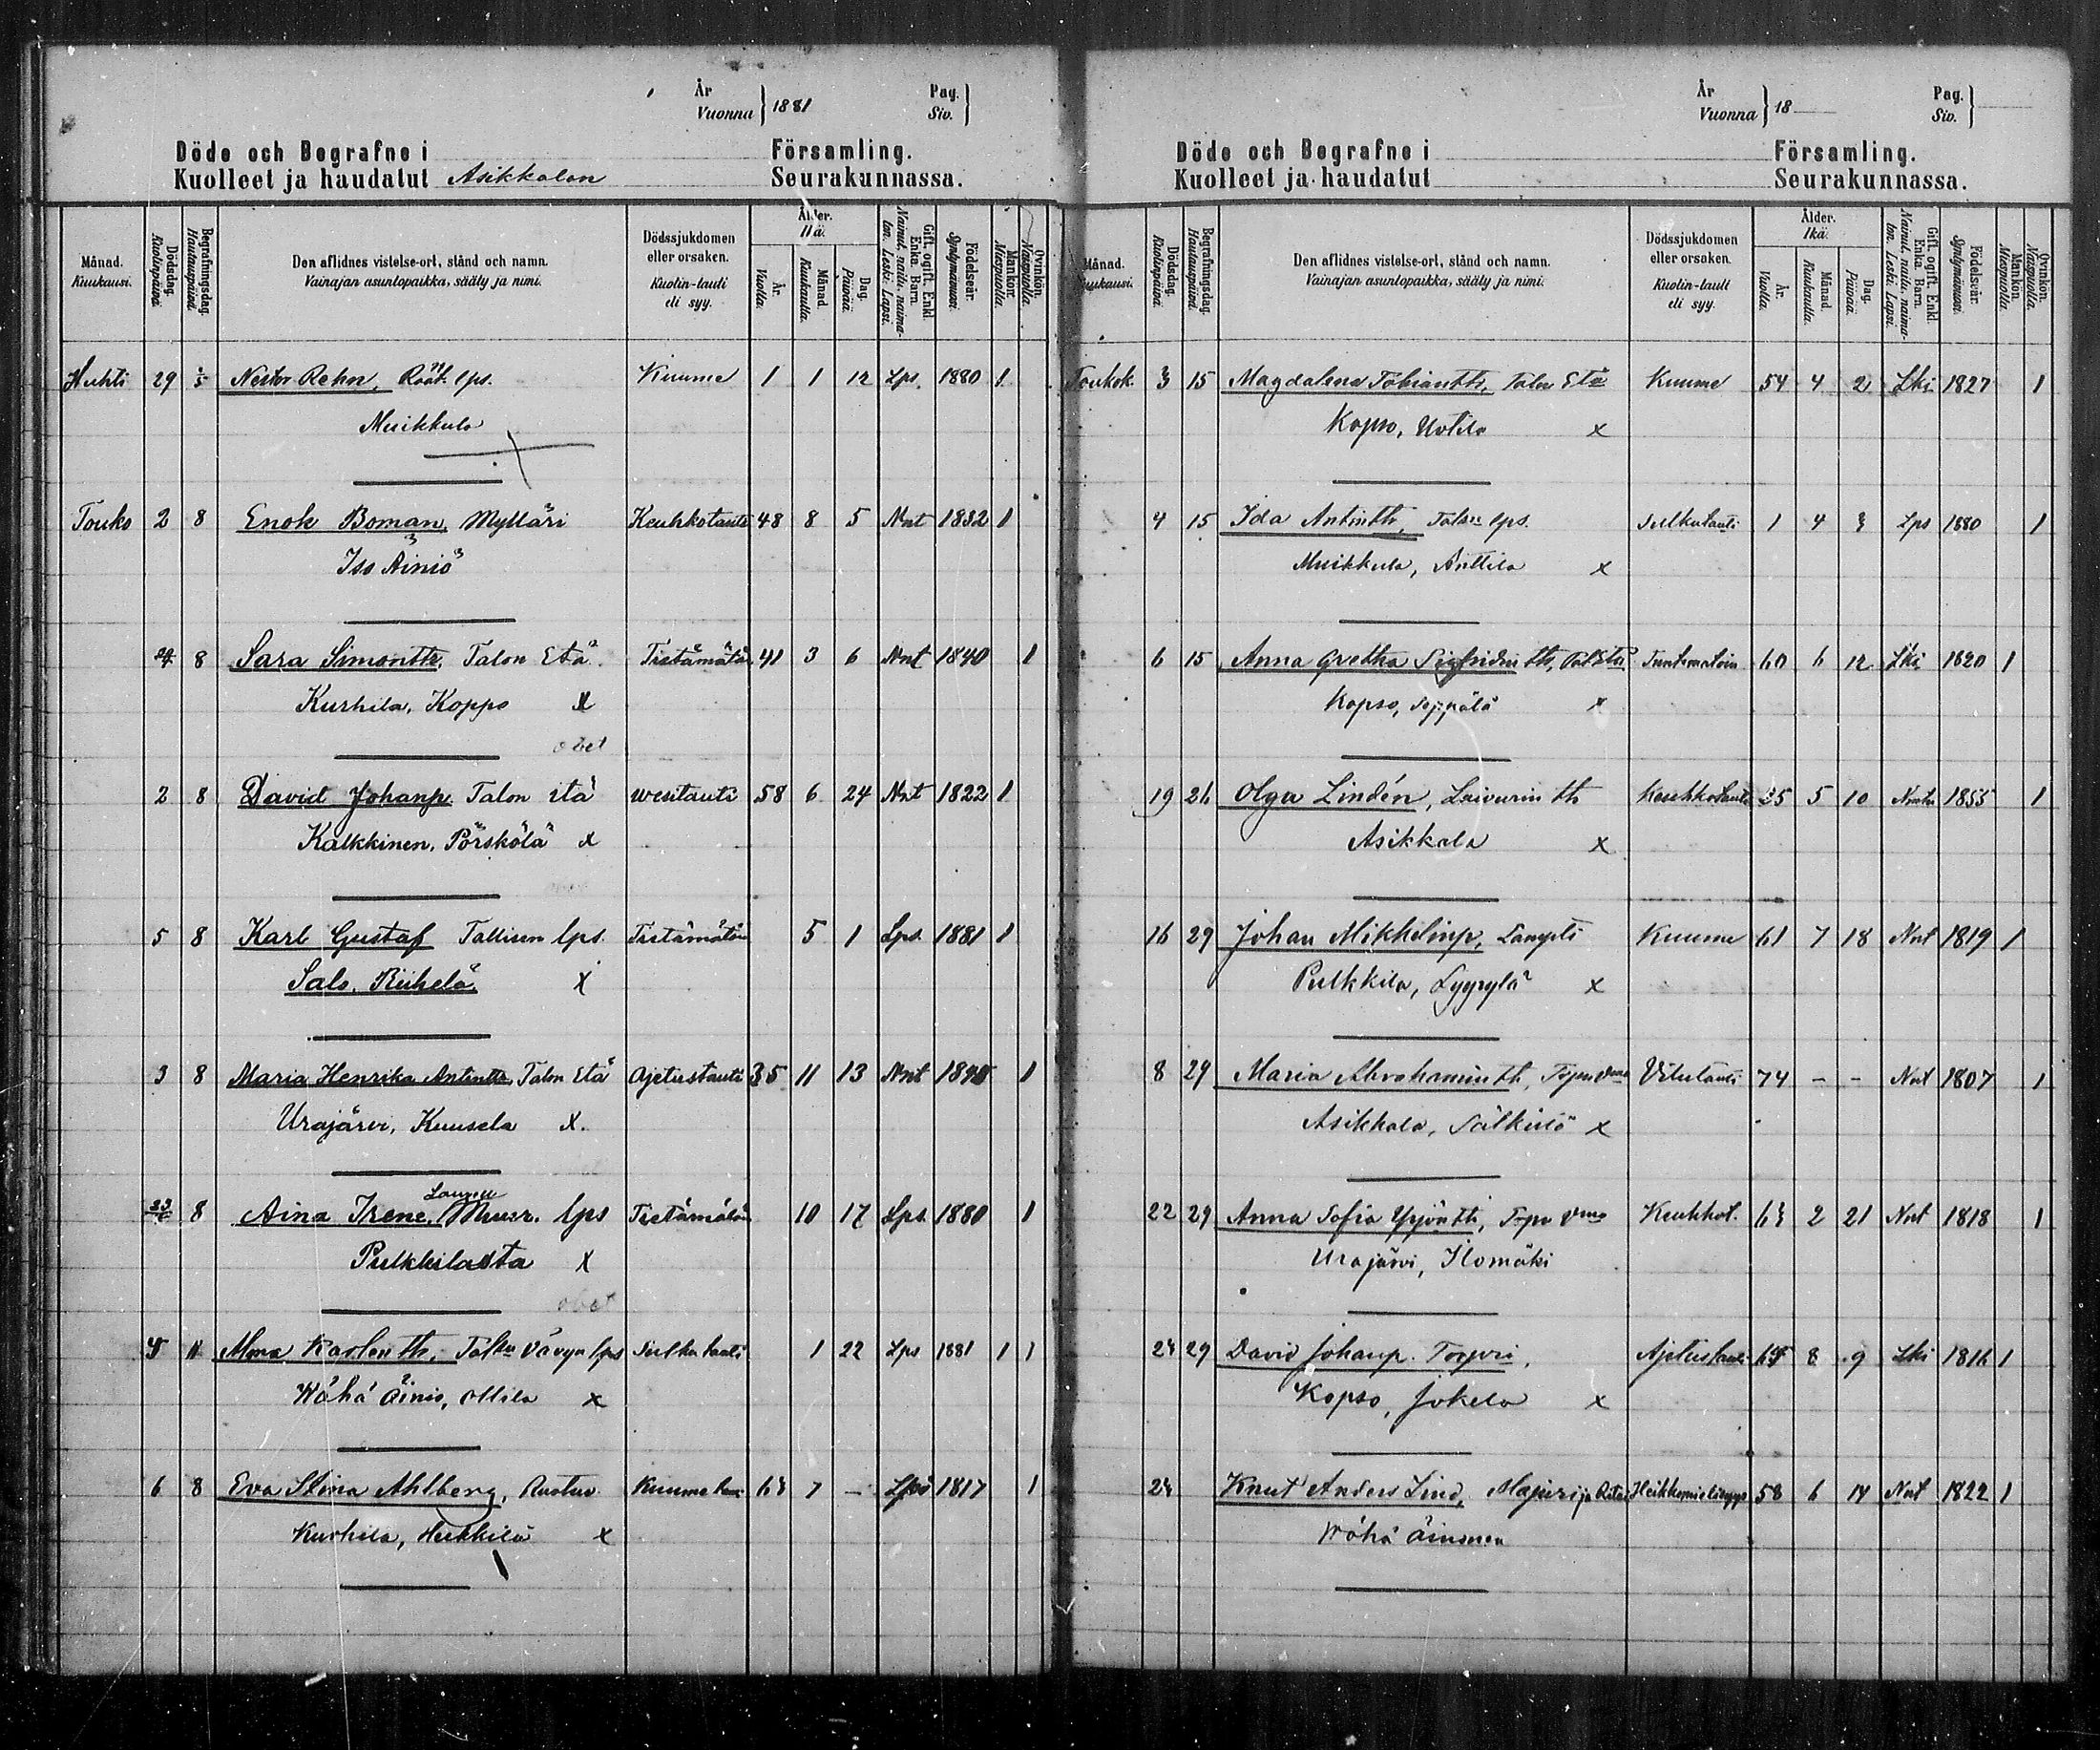 År
Vuonna } 1881
Pag.
Siv. }
Döde och Begrafne i Församling.
Kuolleet ja haudatut Asikkalan Seurakunnassa.
Månad. Kuukausi.
Dödsdag. Kuolinpäivä.
Begrafningsdag. Hautauspäivä.
Den aflidnes vistelse-ort, stånd och namn.
Vainajan asuntopaikka, sääty ja nimi.
Dödssjukdomen eller orsaken.
Kuolin-tauti eli syy.
Ålder. Ikä.
År. Vuotta.
Månad. Kuukautta.
Dag. Päivää.
Gift, ogift. Enkl. Enka. Barn.
Nainut, naitu, naimaton. Leski. Lapsi.
Födelseår. Syntymävuosi.
Mankön. Miespuolta.
Qvinkön. Vaispuolta.
Huhti 29 1/5 Nestor Rehn, lps. Kuume 1 1 12 Lps. 1880 1
Muikkula
Touko 2 8 Enok Boman, Mylläri Keuhkotauti 48 8 5 Nnt 1832 1
Iso Äiniö
8 Sara Simontr, Talon Etä Tietämätön 41 3 6 Nnt 1840 1
Kurhila, Koppo x
obet
2 8 David Johanp. Talon itä wesitauti 58 6 24 Nnt 1822 1
Kalkkinen, Pörskölä x
5 8 Karl Gustaf Tallisen lps. Tietämätön 5 1 Lps. 1881 1
Salo, Riihelä x
3 8 Maria Henrika Antintr Talon Etä Ajetustauti 35 11 13 Nnt 1
Urajärvi, Kuusela x.
Lauren
8 Aina Irene, Muur. lps Tietämätön 10 17 Lps. 1880 1
Pulkkilasta x
obet
Alma Karlen tr, vävyn lps Sulkutauti 1 22 Lps 1881 1 1
Wähä Äiniö, Ollila x
6 8 Eva Stina Ahlberg, Kuume 63 7 – 1817 1
Kurhila, Heikkilä x
År
Vuonna } 18
Pag.
Siv. }
Döde och Begrafne i Församling.
Kuolleet ja haudatut Seurakunnassa.
Månad. Kuukausi.
Dödsdag. Kuolinpäivä.
Begrafningsdag. Hautauspäivä.
Den aflidnes vistelse-ort, stånd och namn.
Vainajan asuntopaikka, sääty ja nimi.
Dödssjukdomen eller orsaken.
Kuolin-tauti eli syy.
Ålder. Ikä.
År. Vuotta.
Månad. Kuukautta.
Dag. Päivää.
Gift, ogift. Enkl. Enka. Barn.
Nainut, naitu, naimaton. Leski. Lapsi.
Födelseår. Syntymävuosi.
Mankön. Miespuolta.
Qvinkön. Vaispuolta.
Toukok. 3 15 Magdalena Tobiantr, Talon Etä Kuume 54 4 2 Lki 1827 1
Kopso, Uotila x
4 15 Ida Antintr, lps. Sulkutauti 1 4 3 Lps 1880 1
Muikkula, Anttila x
6 15 Anna Gretha Sigfridin tr, Tuntematoin 60 6 12 Lki 1820 1
Kopso, Seppälä x
19 26 Olga Lindén, Laivurin tr Keuhkotauti 25 5 10 1855 1
Asikkala x
16 29 Johan Mikkelinp, Kuume 61 7 18 Nnt 1819 1
Pulkkila, Lyyrylä x
8 29 Maria Abrahamin tr, Vilutauti 74 – – Nnt 1807 1
Asikkala, x
22 29 Anna Sofia Yrjöntr, Keuhkot. 63 2 21 Nnt 1818 1
Urajärvi, Ilomäki
23 29 David Johanp. Torpari, Ajetustauti 8 9 Lki 1816 1
Kopso, Jokela x
24 Knut Anders Lind, Majuri ja 58 6 14 Nnt 1822 1
Wähä Äiniönen